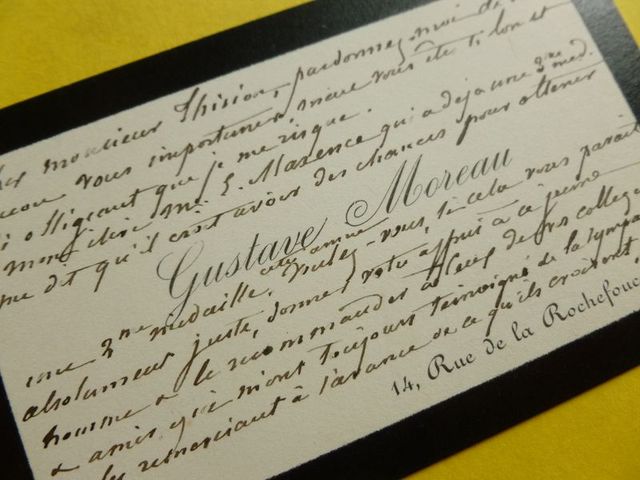 monsieur Thirion, pardonnez-moi de
vous importuner, mieux vous êtes si bon et
si obligeant que je me risque.
mon élève Mr E. Maxence qui a déjà une 3me med.
me dit qu'il croit avoir des chances pour obtenir
Gustave Moreau
une 2me medaille cette année. Voulez-vous, si cela vous parait
absolument juste, donner votre appui à ce jeune
homme & le recommander à ceux de vos collegues
& amis qui m'ont toujours témoigné de la sympa
remerciant à l'avance de ce qu'ils croiront
14, Rue de la Rochefouc